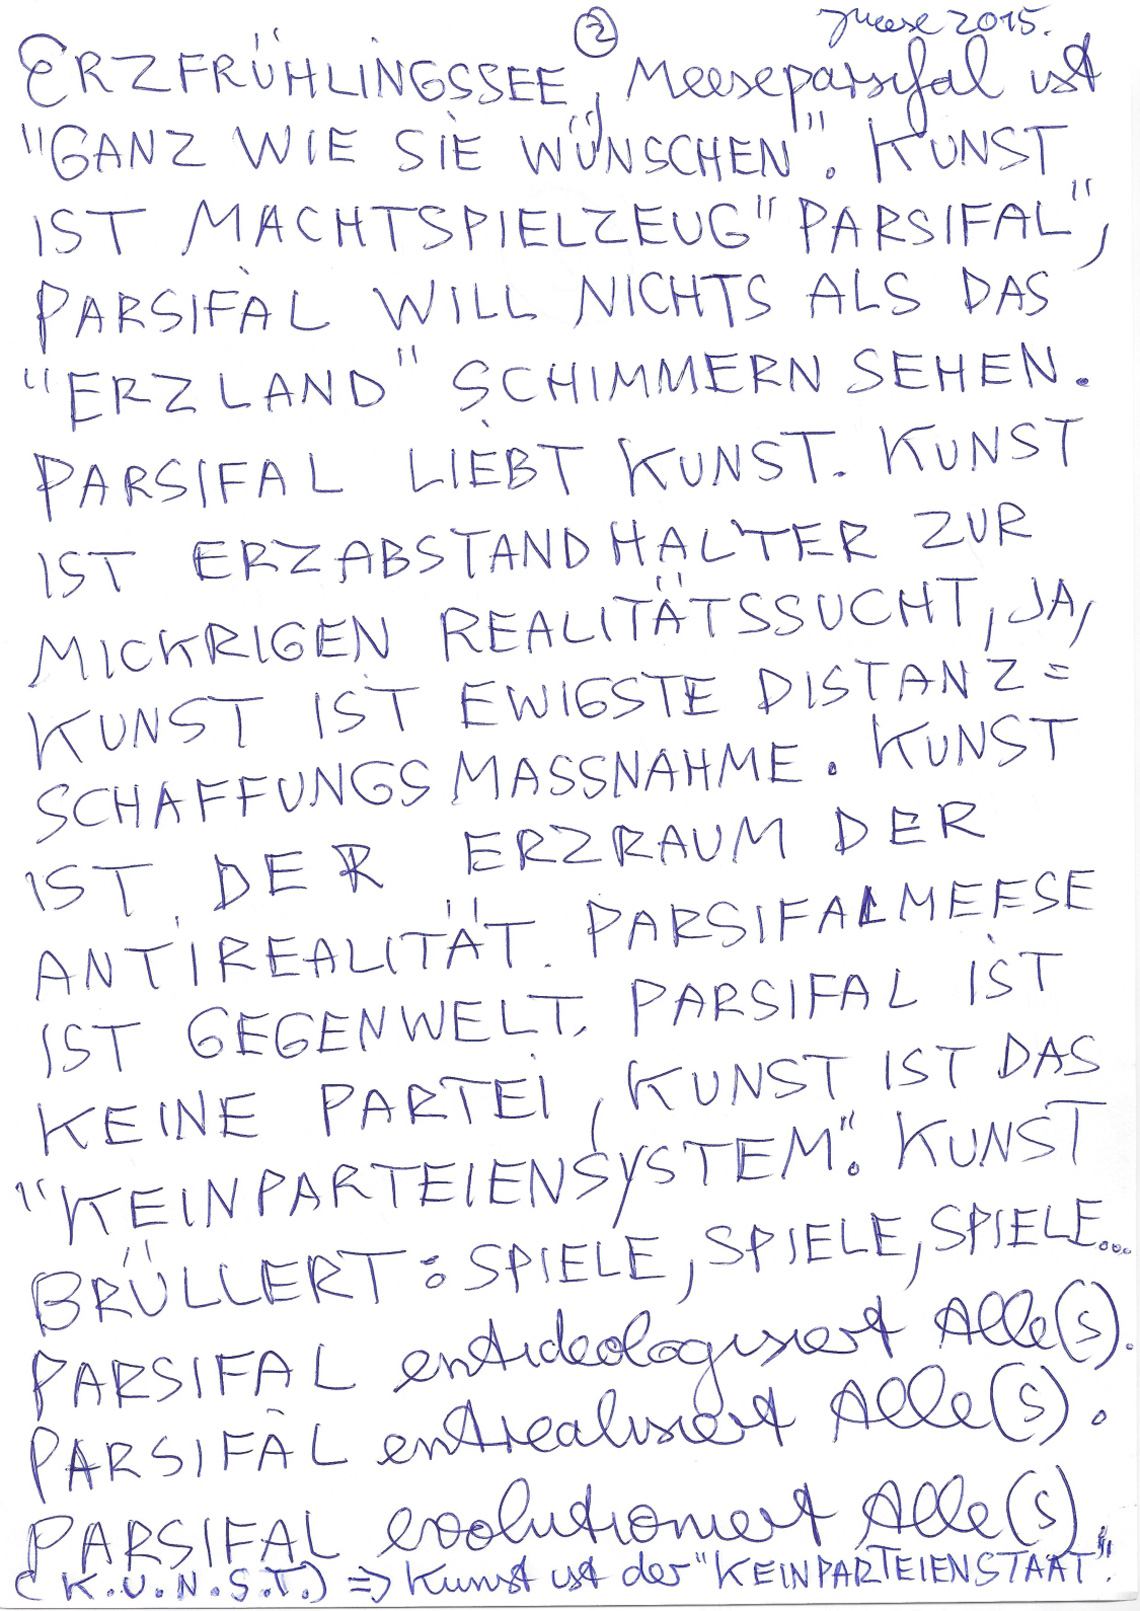 ② JMeese 2015.
ERZFRÜHLINGSSEE, Meeseparsifal ist
"GANZ WIE SIE WÜNSCHEN". KUNST
IST MACHTSPIELZEUG "PARSIFAL",
PARSIFAL WILL NICHTS ALS DAS
"ERZLAND" SCHIMMERN SEHEN.
PARSIFAL LIEBT KUNST. KUNST
IST ERZABSTANDHALTER ZUR
MICKRIGEN REALITÄTSSUCHT, JA,
KUNST IST EWIGSTE DISTANZ=
SCHAFFUNGSMASSNAHME. KUNST
IST DER ERZRAUM DER
ANTIREALITÄT. PARSIFALMEESE
IST GEGENWELT. PARSIFAL IST
KEINE PARTEI, KUNST IST DAS
"KEINPARTEIENSYSTEM". KUNST
BRÜLLERT: SPIELE, SPIELE, SPIELE...
PARSIFAL entideologisiert Alle(s).
PARSIFAL entrealisiert Alle(s).
PARSIFAL evolutioniert Alle(s).
(K.U.N.S.T.) => Kunst ist der "KEINPARTEIENSTAAT".